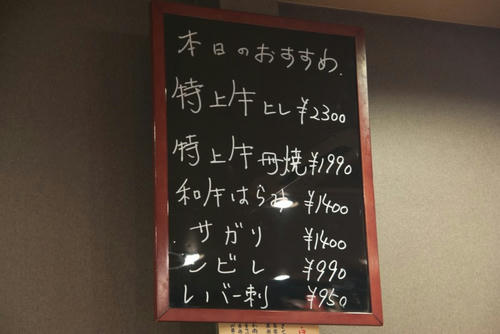 本日のおすすめ.
特上牛ヒレ ¥2300
特上牛丹焼 ¥1990
和牛はらみ ¥1400
サガリ ¥1400
シビレ ¥990
レバー刺 ¥950